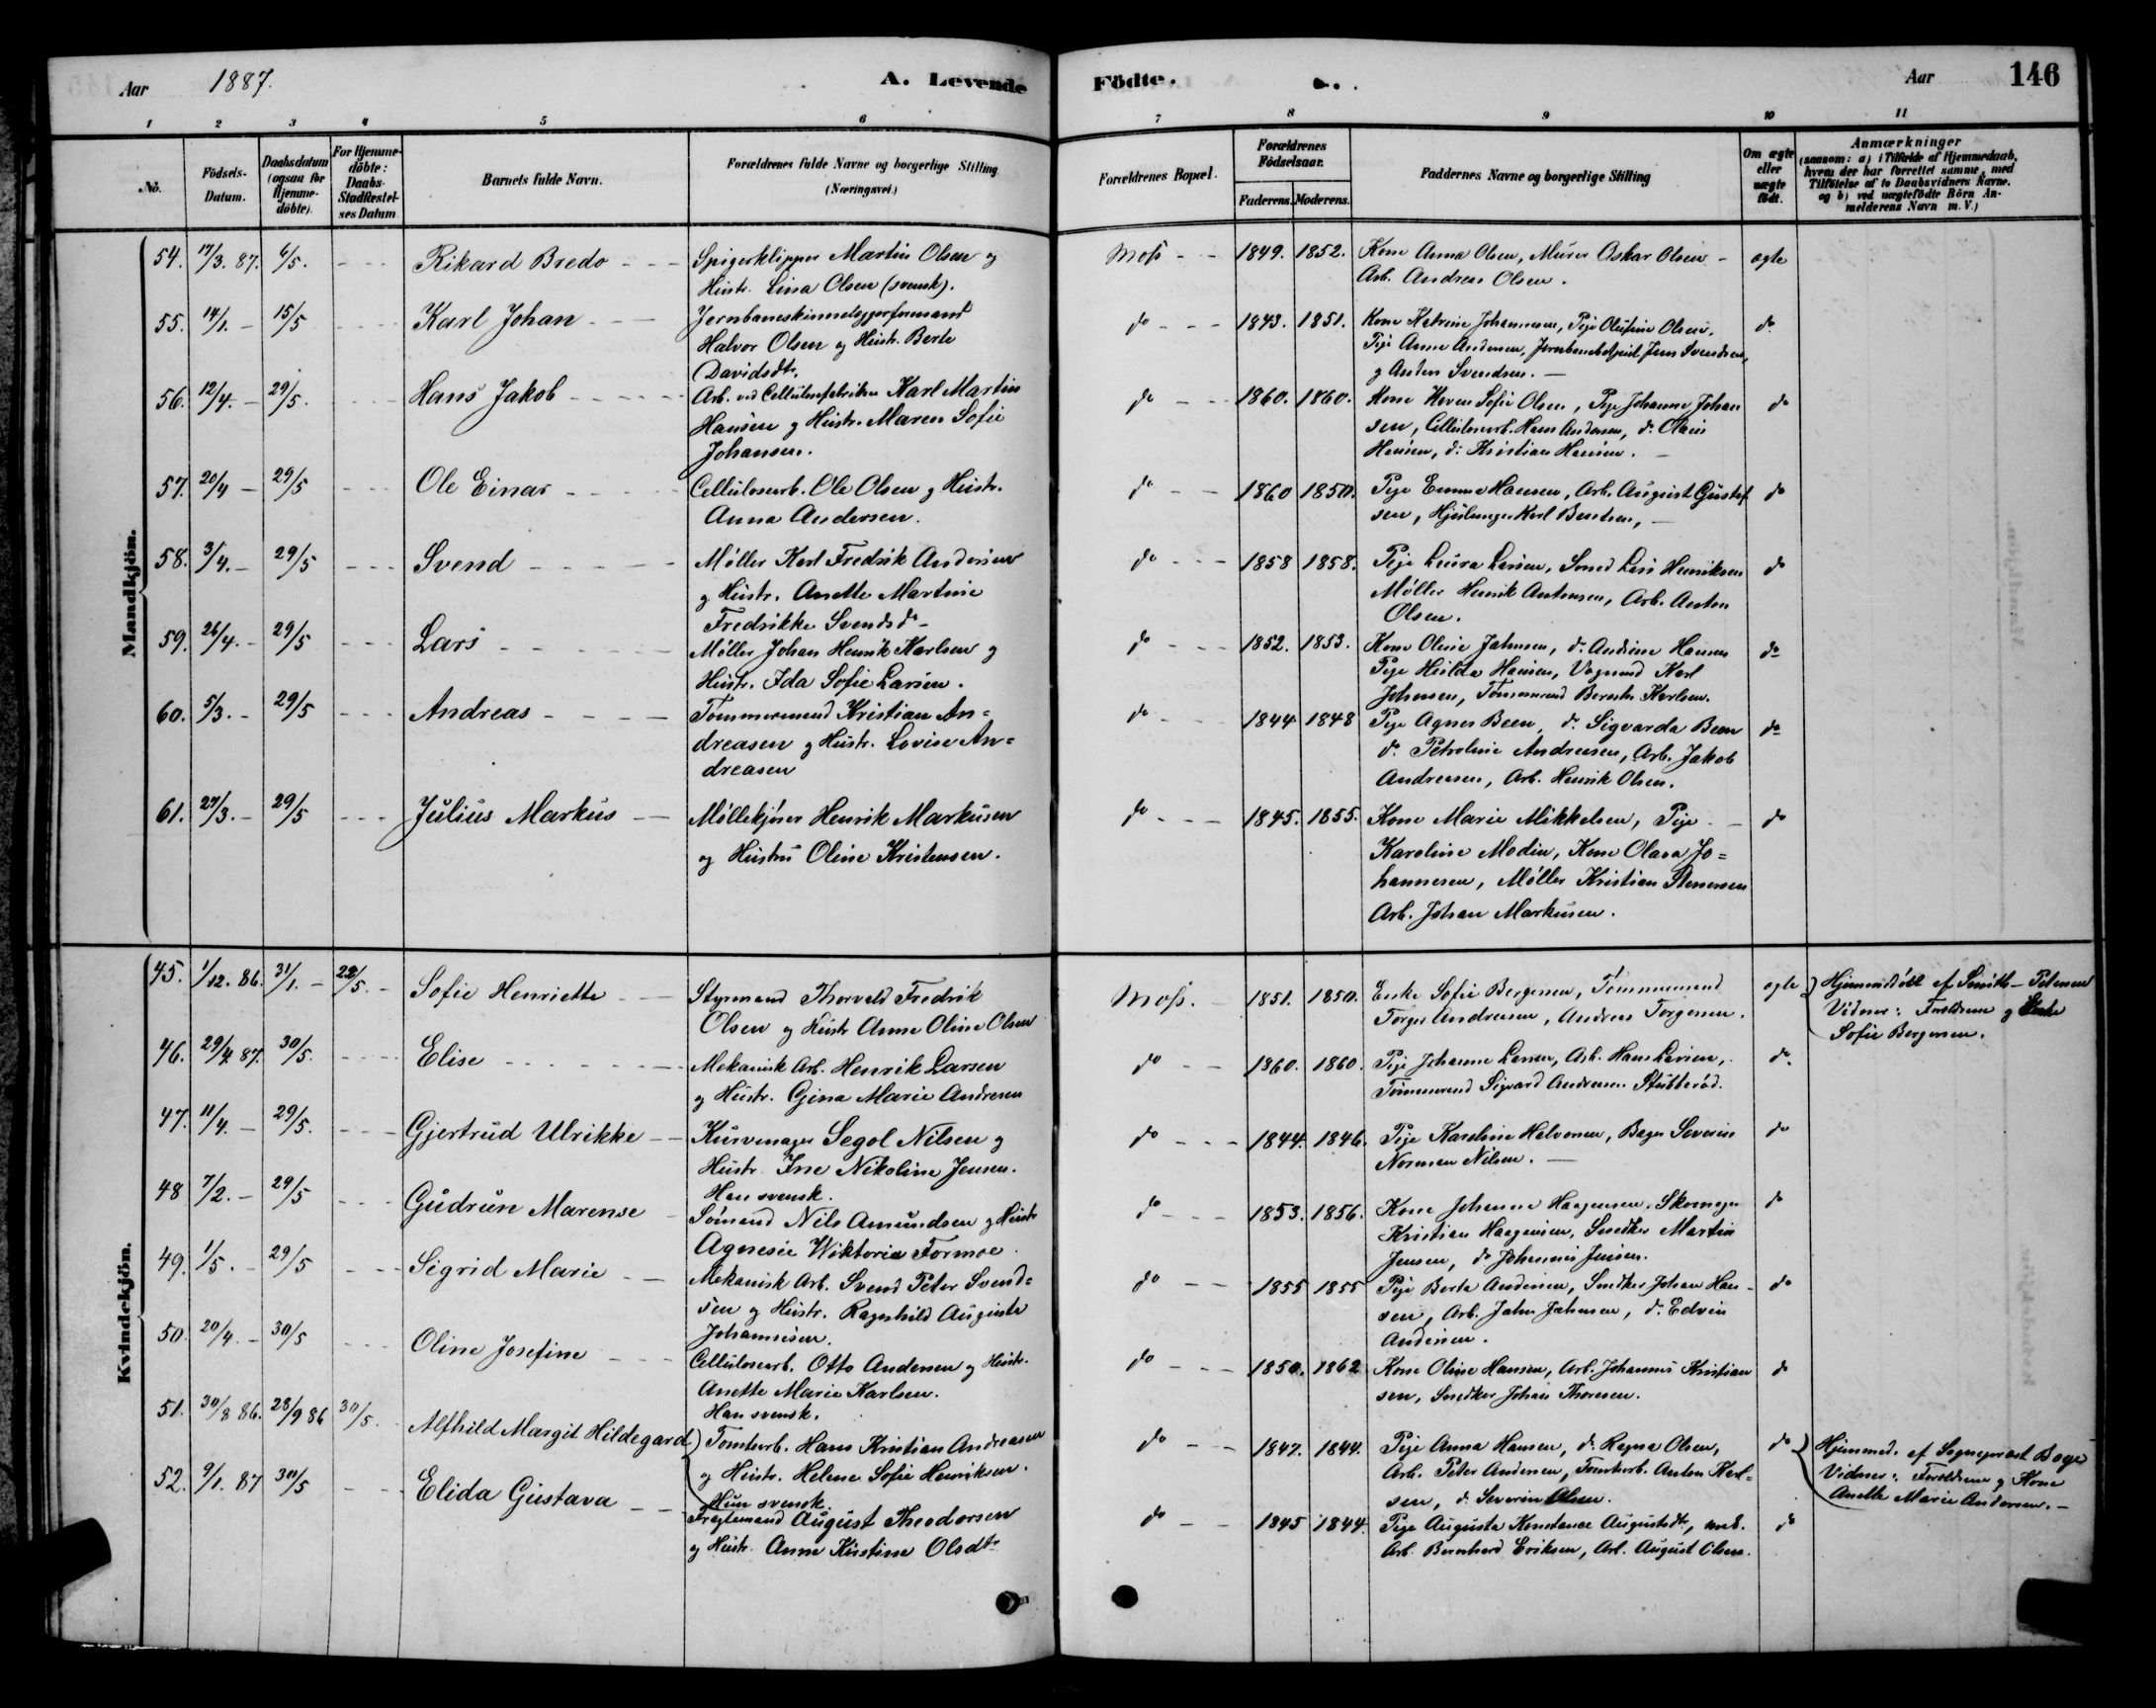 Aar 1887. A. Levende Födte. Aar 146
1 2 3 4 5 6 7 8 9 10 11
No. Födsels-Datum. Daabsdatum (ogsaa for Hjemme-döbte). For Hjemme-döbte: Daabs-Stadfæstel-ses Datum Barnets fulde Navn. Forældrenes fulde Navne og borgerlige Stilling (Næringsvei.) Forældrenes Bopæl. Forældrenes Födselsaar. Faderens. Moderens. Faddernes Navne og borgerlige Stilling Om ægte eller uægte födt. Anmærkninger (saasom: a) i Tilfælde af Hjemmedaab, hvem der har forrettet samme, med Tilföielse af to Daabsvidners Navne. og b) ved uægtefödte Börn An-melderens Navn m. V.)
Mandkjön.
54. 17/3. 87. 6/5. Rikard Bredo Spigerklipper Martin Olsen og Moss 1849. 1852. Kone Anna Olsen, Murer Oskar Olsen ægte
Hustr. Lina Olsen (svensk). Arb. Andreas Olsen.
55. 14/1. - 15/5 Karl Johan Jernbaneskinnelæggerformand do 1843. 1851. Kone Katrine Johannesen, Pige Olufine Olsen, do
Halvor Olsen og Hustr. Berte Pige Anne Andersen, Jernbanebetjent Jens Svendsen,
Davidsdtr. og Anders Svendsen.
56. 12/4. - 29/5. Hans Jakob Arb. ved Cellulosefabriken Karl Martin do 1860. 1860. Kone Maren Sofie Olsen, Pige Johanne Johan do
Hansen og Hustr. Maren Sofie sen, Cellulosearb. Hans Andersen, do Olaus
Johansen. Hansen, do Kristian Hansen.
57. 20/4 - 29/5 Ole Einar Cellulosearb. Ole Olsen og Hustr. do 1860 1850. Pige Emma Hansen, Arb. August Gustaf do
Anna Andersen. sen, Hjulmager Karl Bentsen,
58. 3/4. - 29/5 Svend Møller Karl Fredrik Andersen do 1858 1858. Pige Laura Larsen, Smed Lars Henriksen do
og Hustr. Anette Martine Møller Henrik Antonsen, Arb. Anton
Fredrikke Svendsd. Olsen.
59. 26/4. - 29/5 Lars Møller Johan Henrik Karlsen og do 1852. 1853. Kone Oline Jahnsen, do Andrine Hansen do
Hustr. Ida Sofie Larsen. Pige Hulda Hansen, Vognmand Karl
Johnsen, Tømmermand Bernth. Karlsen.
60. 5/3. - 29/5 Andreas Tømmermand Kristian An= do 1844 1848 Pige Agnes Been, do Sigvarda Been do
dreasen og Hustr. Lovise An= do Petroline Andreasen, Arb. Jakob
dreasen Andreasen, Arb. Henrik Olsen.
61. 27/3. - 29/5 Julius Markus Møllekjører Henrik Markusen do 1845. 1855. Kone Marie Mikkelsen, Pige do
og Hustru Oline Kristensen. Karoline Modin, Kone Olava Jo=
hannesen, Møller Kristian Stenersen
Arb. Johan Markusen.
Kvindekjön.
45. 1/12. 86. 31/1. - 22/5. - Sofie Henriette Styrmand Thorvald Fredrik Moss. 1851. 1850. Enke Sofie Bergersen, Tømmermand ægte Hjemmedøbt af Smith-Petersen
Olsen og Hustr Anne Oline Olsen Torger Andreasen, Andreas Torgersen. Vidner: Forældrene og Enke
Sofie Bergersen.
46. 29/4. 87. 30/5. Elise Mekanisk Arb. Henrik Larsen do 1860. 1860. Pige Johanne Larsen, Arb. Hans Larsen, do
og Hustr. Gina Marie Andresen Tømmermand Sigvard Andresen Stutterød.
47. 11/4. - 29/5. Gjertrud Ulrikke Kurvemager Segol Nilsen og do 1844. 1846. Pige Karoline Halvorsen, Bager Severin do
Hustr. Ine Nikoline Jensen. Norman Nilsen.
Han svensk.
48 7/2. - 29/5 Gudrun Marense Sømand Nils Amundsen og Hustr do 1853. 1856. Kone Johanne Haagensen, Skomager do
Agnesie Wiktoria Formoe. Kristian Haagensen, Snedker Martin
Jensen, do Johannes Jensen.
49. 1/5. - 29/5 Sigrid Marie Mekanisk Arb. Svend Peter Svend= do 1855 1855 Pige Berta Andersen, Snedker Johan Han- do
sen og Hustr. Ragnhild Auguste sen, Arb. Jahn Jahnsen, do Edvin
Johannesen. Andersen.
50. 20/4. - 30/5 Oline Josefine Cellulosearb. Otto Andersen og Hustr. do 1850. 1862 Kone Oline Hansen, Arb. Johannes Kristian do
Anette Marie Karlsen. sen, Snedker Johan Thoresen.
Han svensk.
51. 30/8 86. 28/9 86 30/5. Alfhild Margit Hildegard Tomtearb. Hans Kristian Andreasen do 1847. 1844. Pige Anna Hansen, do Ragna Olsen, do Hjemmed. af Sogneprest Boge
og Hustr. Helene Sofie Henriksen. Arb. Peter Andersen, Tomtearb. Anton Karl= Vidner: Forældrene og Kone
Hun svensk. sen, do Severin Olsen. Anette Marie Andersen.
52. 9/1. 87 30/5 Elida Gustava Fragtemand August Theodorsen do 1845 1844. Pige Augusta Konstance Augustsdtr, mek. do
og Hustr. Anne Kirstine Olsdtr Arb. Bernhard Eriksen, Arb. August Olsen.